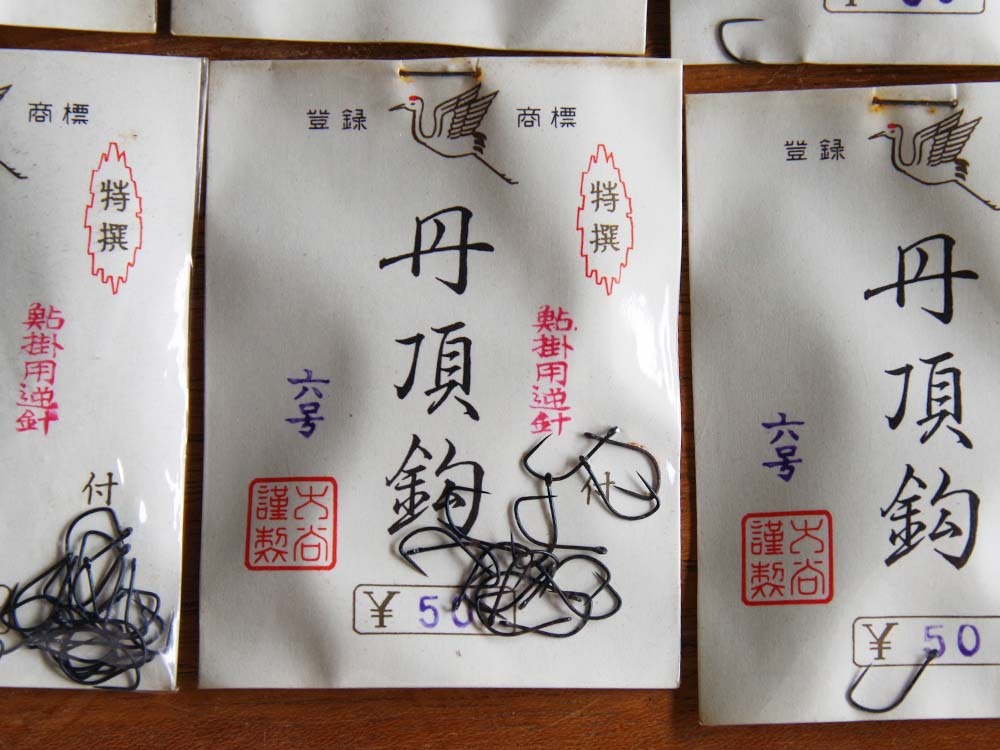 商標
特撰
鮎掛用逆針
付
登録 商標
特撰
丹頂鈎
鮎掛用逆針
六号
付
大谷謹製
¥ 50
登録
丹頂鈎
六号
大谷謹製
¥ 50